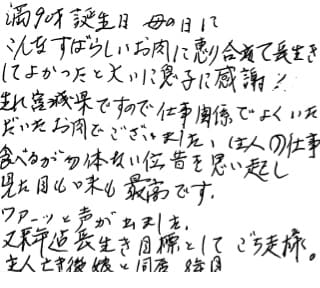 満90才誕生日 母の日に
こんなすばらしいお肉に恵り合えて長生き
してよかったと大いに息子に感謝!!
生れ宮城県ですので仕事関係でよくいた
だいたお肉でございました、住人の仕事
食べるが勿体ない位昔を思い起し
見た目も味も最高です。
ワァーッと声が出ました。
又来年迄長生き目標として ご馳走様。
主人亡き後娘と同居